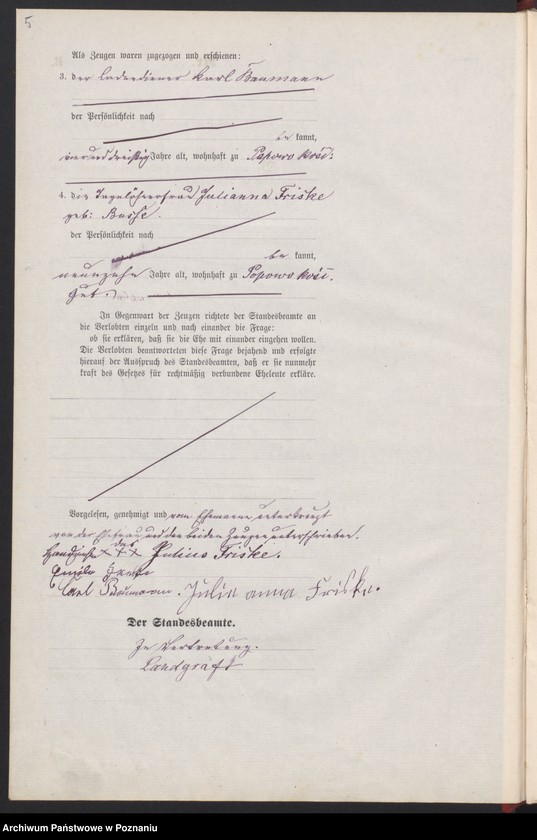 5
Als Zeugen waren zugezogen und erschienen:
3. der Karl Baumann
der Persönlichkeit nach
be kannt,
vierunddreißig Jahre alt, wohnhaft zu Popowo kośc:
4. die Tagelöhnerfrau Julianna Friske
geb: Busse.
der Persönlichkeit nach
be kannt,
neunzehn Jahre alt, wohnhaft zu Popowo kośc.
Gut.
In Gegenwart der Zeugen richtete der Standesbeamte an
die Verlobten einzeln und nach einander die Frage:
ob sie erklären, daß sie die Ehe mit einander eingehen wollen.
Die Verlobten beantworteten diese Frage bejahend und erfolgte
hierauf der Ausspruch des Standesbeamten, daß er sie nunmehr
kraft des Gesetzes für rechtmäßig verbundene Eheleute erkläre.
Vorgelesen, genehmigt und vom Ehemanne unterkreuzt
von der Ehefrau und den beiden Zeugen unterschrieben.
Handzeichen xxx des Julius Friske.
Carl Baumann. Julianna Friske.
Der Standesbeamte.
In Vertretung.
Landgraff
Archiwum Państwowe w Poznaniu